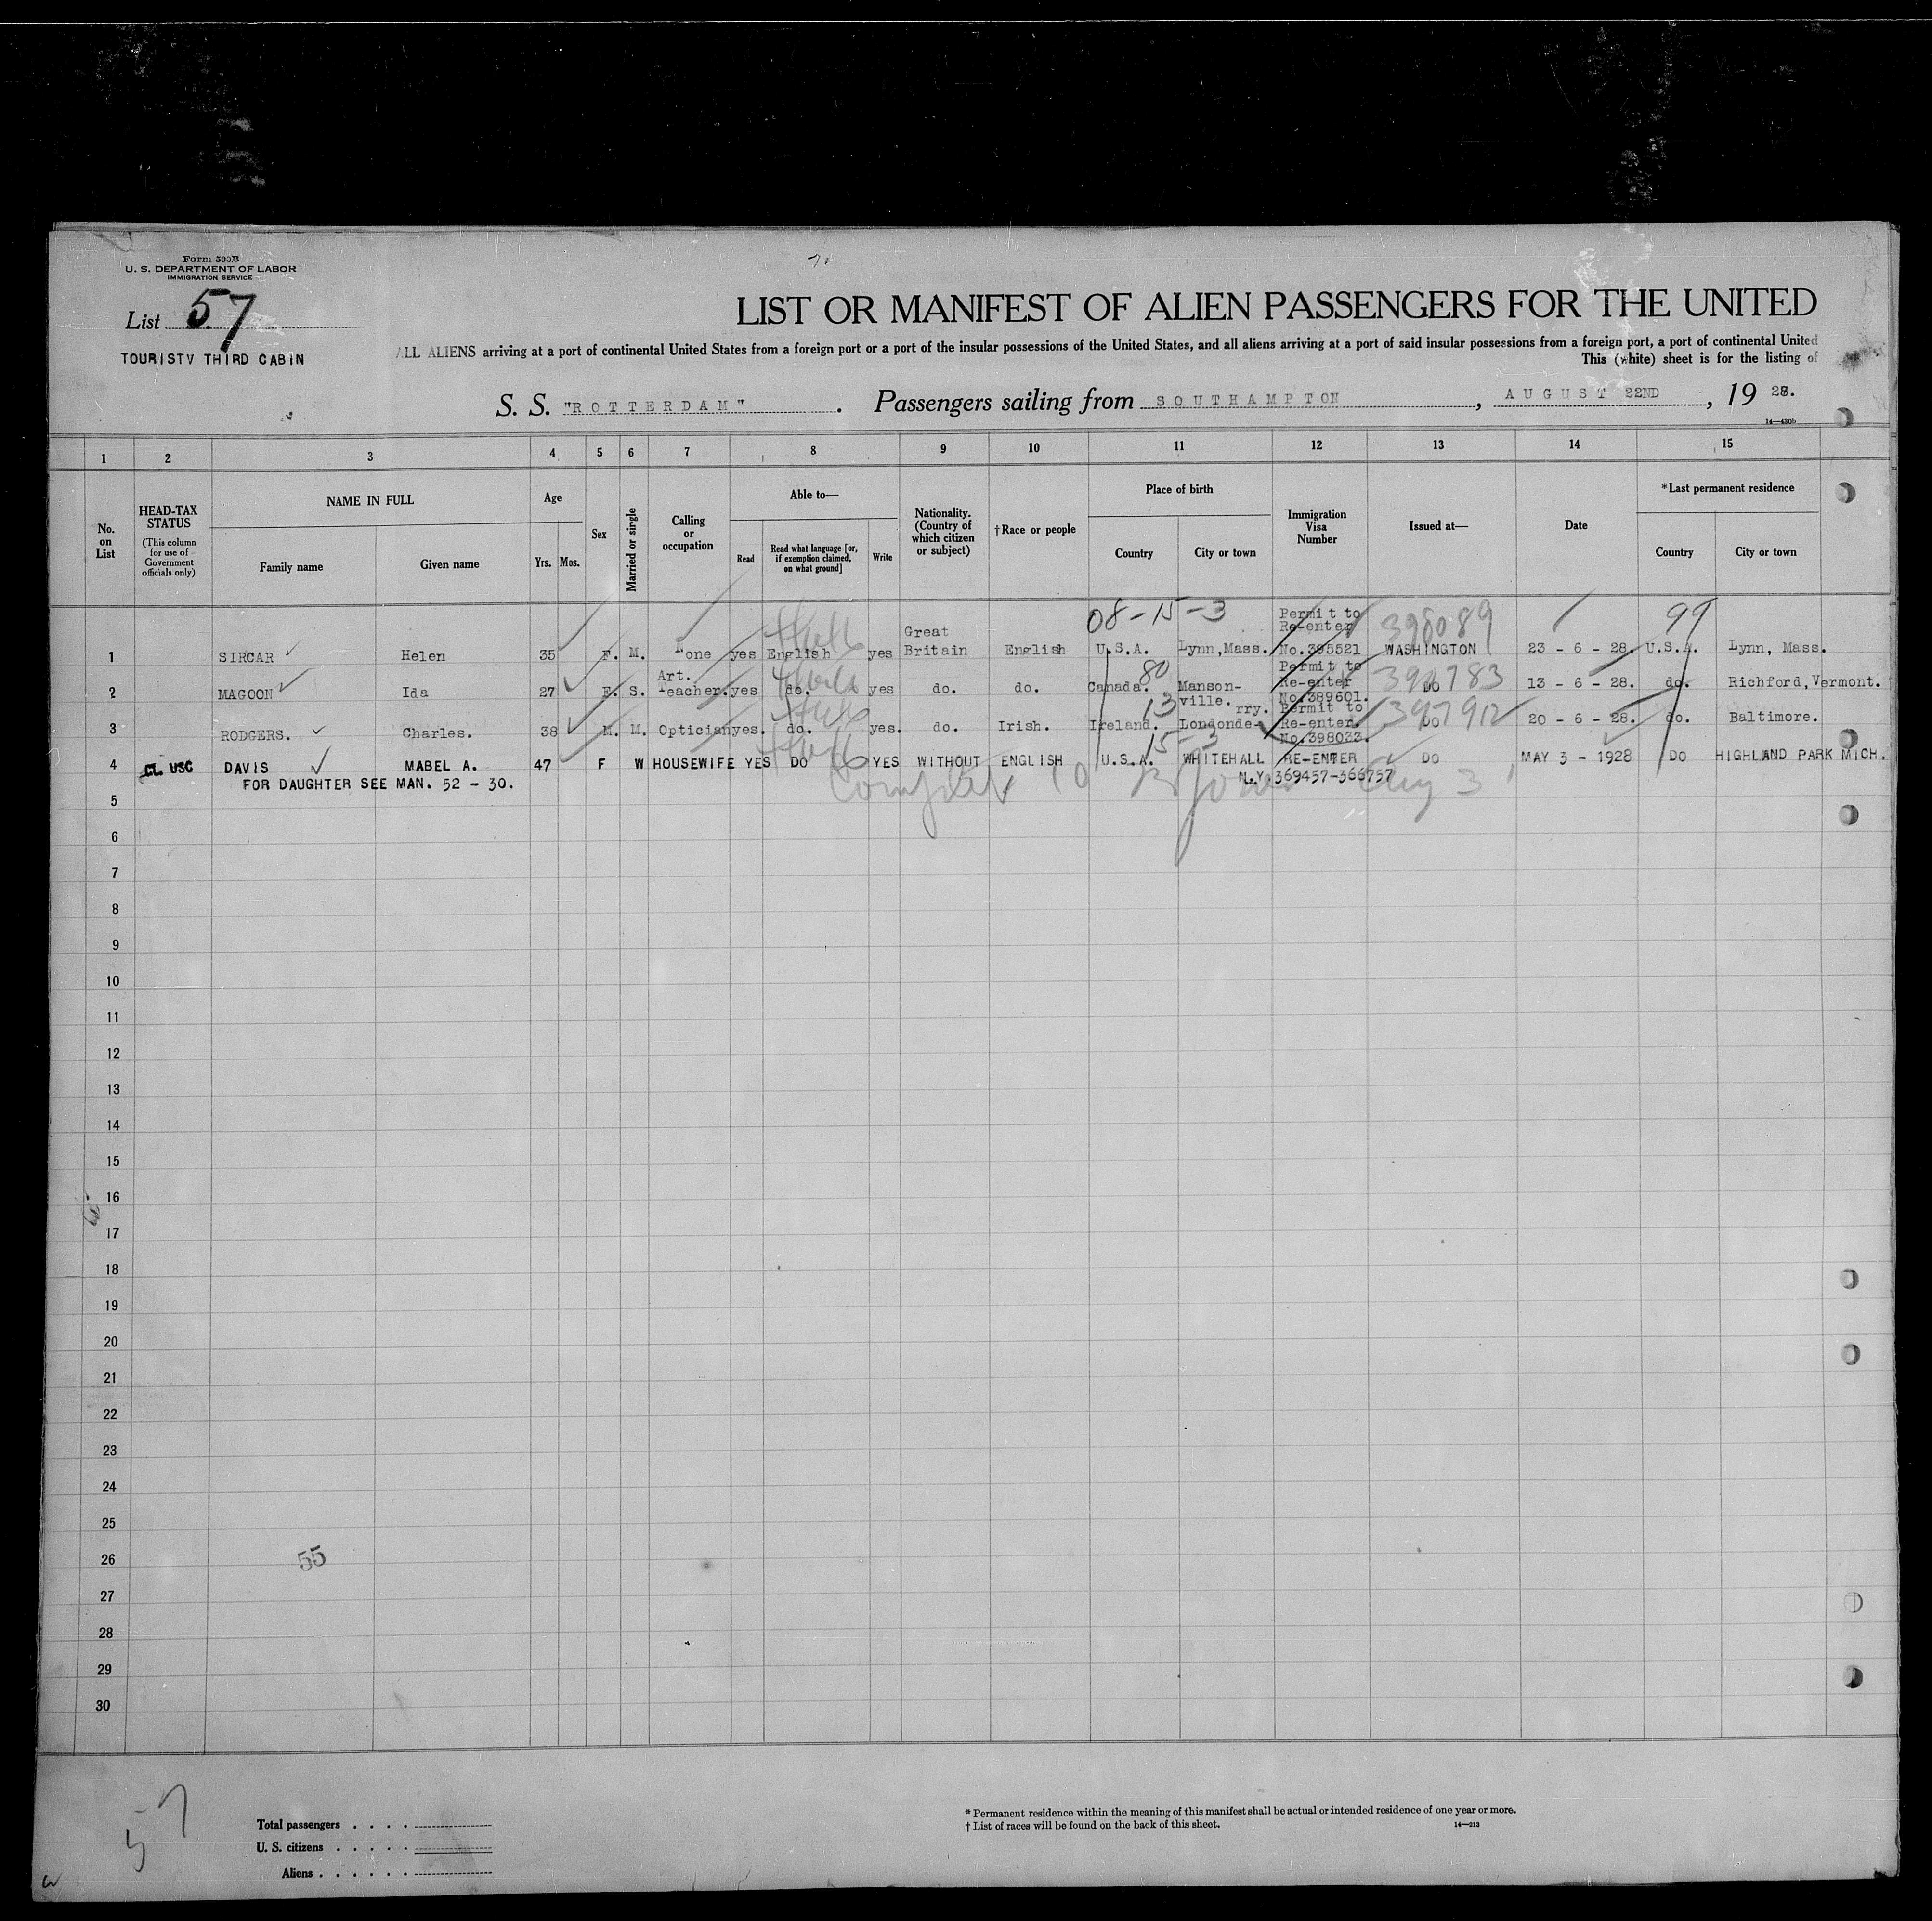 Form 500B
U. S. DEPARTMENT OF LABOR
IMMIGRATION SERVICE
List 57
TOURISTV THIRD CABIN
LIST OR MANIFEST OF ALIEN PASSENGERS FOR THE UNITED
ALL ALIENS arriving at a port of continental United States from a foreign port or a port of the insular possessions of the United States, and all aliens arriving at a port of said insular possessions from a foreign port, a port of continental United
This (white) sheet is for the listing of
S. S. "ROTTERDAM". Passengers sailing from SOUTHAMPTON, AUGUST 22ND, 19 28.
14—430b
1 2 3 4 5 6 7 8 9 10 11 12 13 14 15
No. on List
HEAD-TAX STATUS
(This column for use of Government officials only)
NAME IN FULL
Family name Given name
Age
Yrs. Mos.
Sex
Married or single
Calling or occupation
Able to—
Read
Read what language [or, if exemption claimed, on what ground]
Write
Nationality. (Country of which citizen or subject)
†Race or people
Place of birth
Country City or town
Immigration Visa Number
Issued at—
Date
*Last permanent residence
Country City or town
08-15-3 Permit to Re-enter 398089 99
1 SIRCAR Helen 35 F. M. None yes English yes Great Britain English U.S.A. Lynn, Mass. No.395521 WASHINGTON 23 - 6 - 28. U.S.A. Lynn, Mass.
80
2 MAGOON Ida 27 F. S. Art. Teacher. yes do. yes do. do. Canada. Manson-ville. Permit to Re-enter No.389601. DO 13 - 6 - 28. do. Richford, Vermont.
13
3 RODGERS. Charles. 38 M. M. Optician yes. do. yes. do. Irish. Ireland. Londonde-rry. Permit to Re-enter. No.398033. 397912 DO 20 - 6 - 28. do. Baltimore.
15-3
4 CL USC DAVIS MABEL A. 47 F W HOUSEWIFE YES DO YES WITHOUT ENGLISH U.S.A. WHITEHALL RE-ENTER DO MAY 3 - 1928 DO HIGHLAND PARK MICH.
FOR DAUGHTER SEE MAN. 52 - 30. N.Y. 369457-366757
5
6
7
8
9
10
11
12
13
14
15
16
17
18
19
20
21
22
23
24
25
26 55
27
28
29
30
57
Total passengers . . . .
U. S. citizens . . . . .
Aliens . . . . . .
* Permanent residence within the meaning of this manifest shall be actual or intended residence of one year or more.
† List of races will be found on the back of this sheet.
14—213